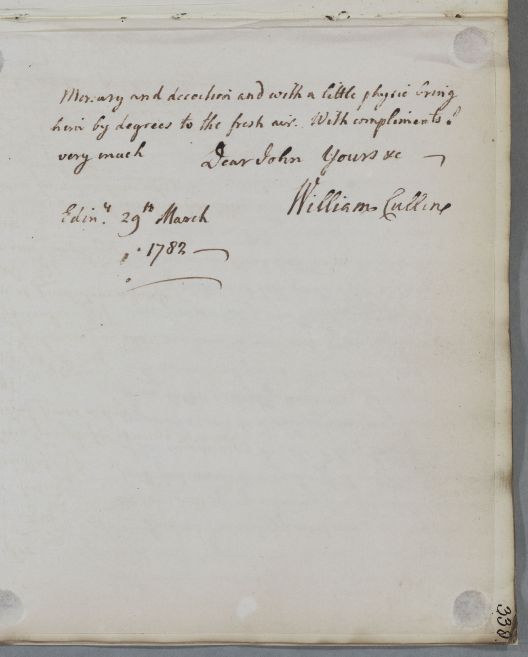 Mercury and decoction and with a little physic bring
him by degrees to the fresh air. With compliments
very much Dear John Yours &c
William Cullen
Edin.r 29th March
1782
338